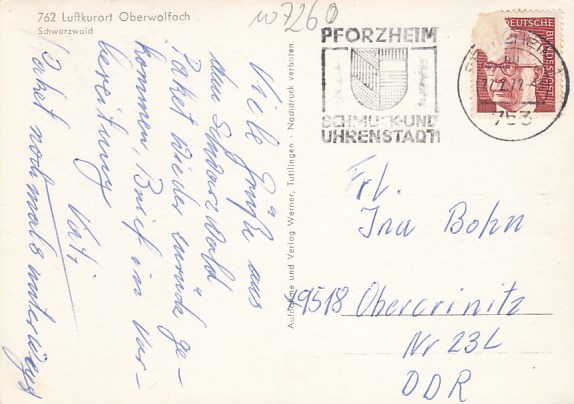 762 Luftkurort Oberwolfach
Schwarzwald
w7260
Viele Grüße aus
dem Schwarzwald
Paket wieder zurück ge-
kommen, Brief in Vor-
bereitung
Vati
Paket nochmals unterwegs
Aufnahme und Verlag Werner, Tuttlingen · Nachdruck verboten
PFORZHEIM
SCHMUCK-UND
UHRENSTADT
DEUTSCHE
BUNDESPOST
753
Frl.
Ina Bohn
49518 Obercrinitz
Nr 23L
DDR